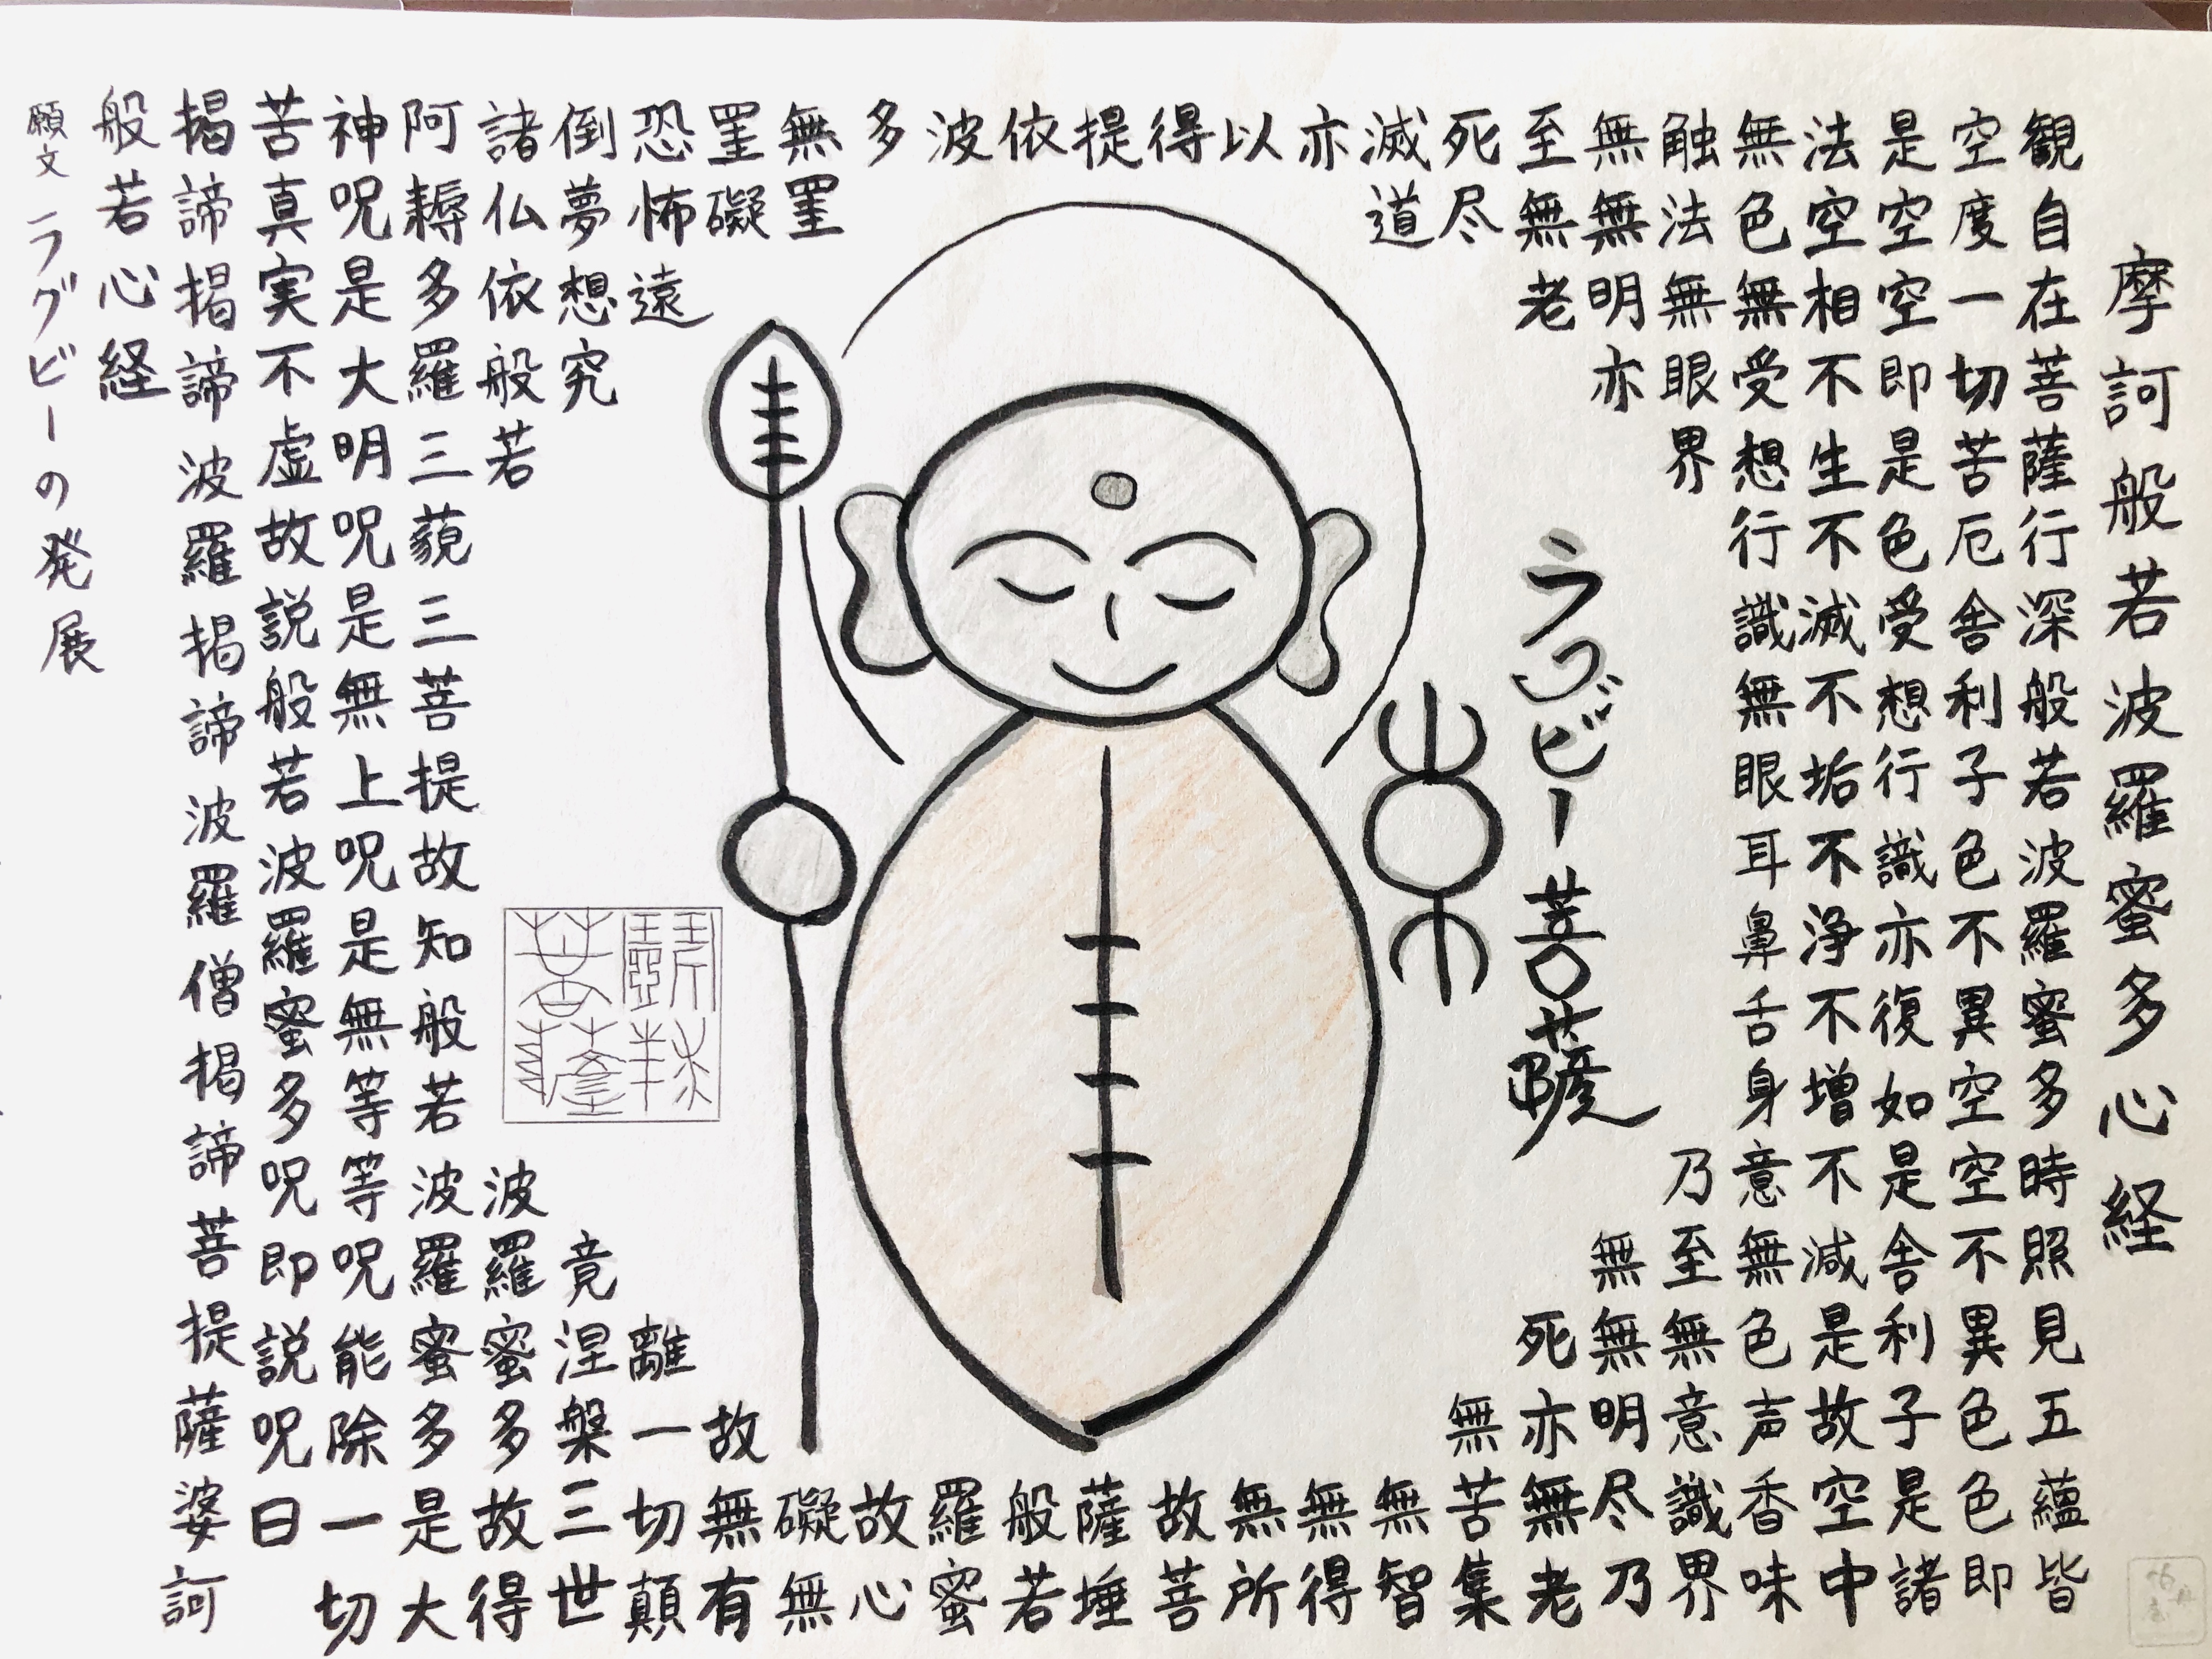 摩訶般若波羅蜜多心経
観自在菩薩行深般若波羅蜜多時照見五蘊皆
空度一切苦厄舎利子色不異空空不異色色即
是空空即是色受想行識亦復如是舎利子是諸
法空相不生不滅不垢不浄不増不減是故空中
無色無受想行識無眼耳鼻舌身意無色声香味
触法無眼界乃至無意識界
無無明亦無無明尽乃
至無老死亦無老
死尽無苦集
滅道無智
亦無得
以無所
得故菩
提薩埵
依般若
波羅蜜
多故心
無罣礙無
罣礙故無有
恐怖遠離一切顛
倒夢想究竟涅槃三世
諸仏依般若波羅蜜多故得
阿耨多羅三藐三菩提故知般若波羅蜜多是大
神呪是大明呪是無上呪是無等等呪能除一切
苦真実不虚故説般若波羅蜜多呪即説呪曰
掲諦掲諦波羅掲諦波羅僧掲諦菩提薩婆訶
般若心経
願文 ラグビーの発展
ラグビー菩薩